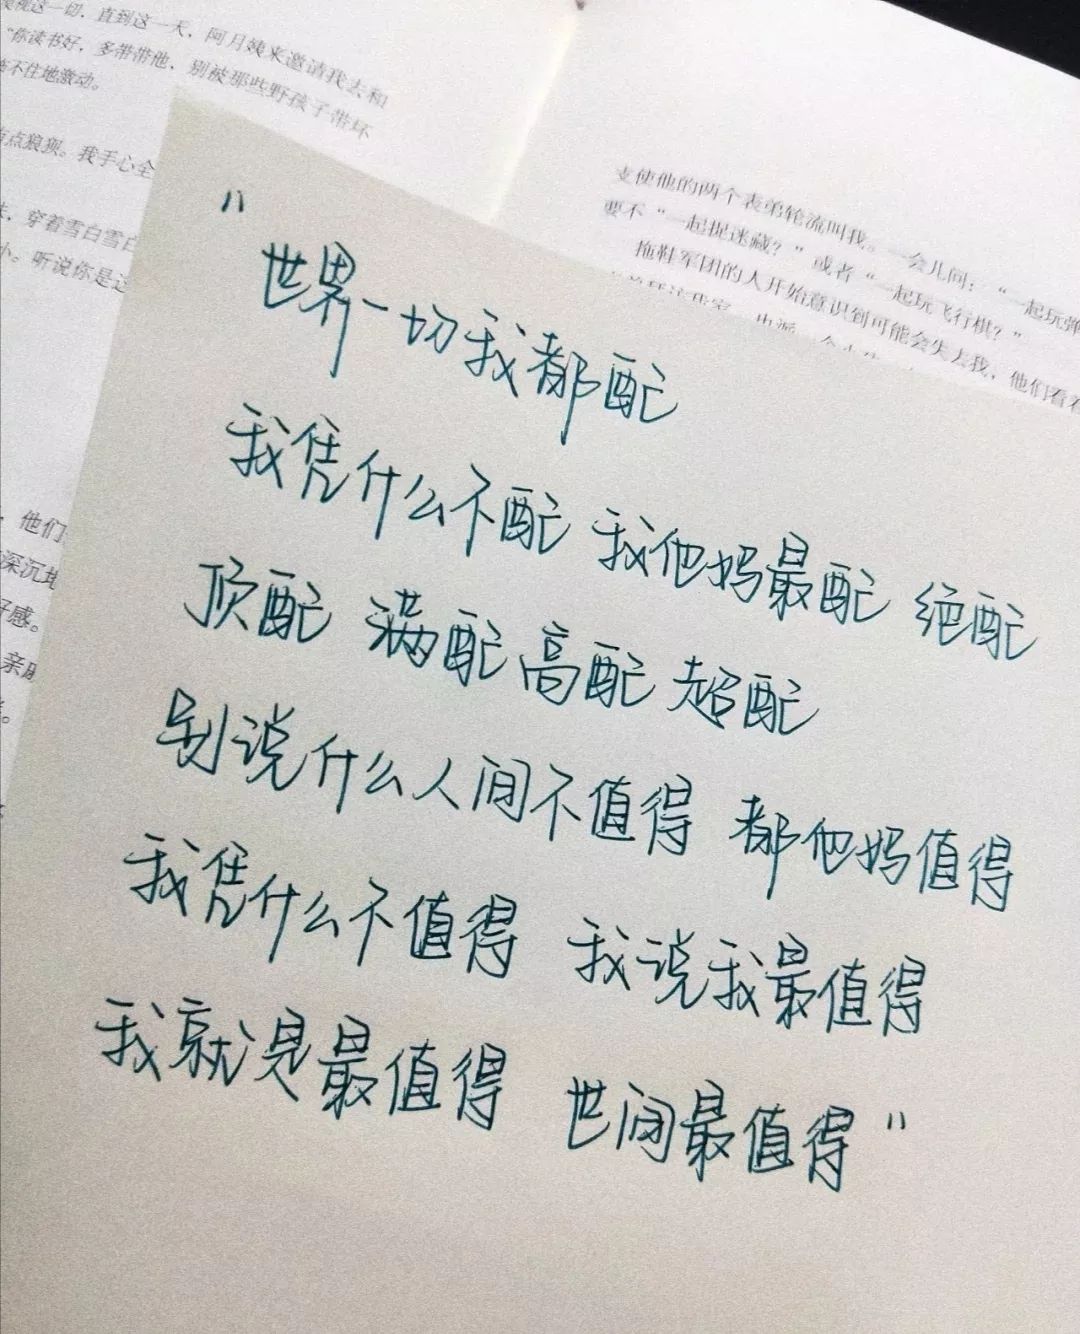 切，直到这一天，阿月姨来邀请我去和
“你读书好，多带带他，别被那些野孩子带坏
不住地激动。
点狼狈。我手心全
穿着雪白雪白
小。听说你是这
他们
深沉地
好感。
支使他的两个表弟轮流叫我。一会儿问：“一起玩弹
要不“一起捉迷藏？”或者“一起玩飞行棋？”
拖鞋军团的人开始意识到可能会失去我，他们看着
“
世界一切我都配
我凭什么不配 我他妈最配 绝配
顶配 满配 高配 超配
别说什么人间不值得 都他妈值得
我凭什么不值得 我说我最值得
我就是最值得 世间最值得”